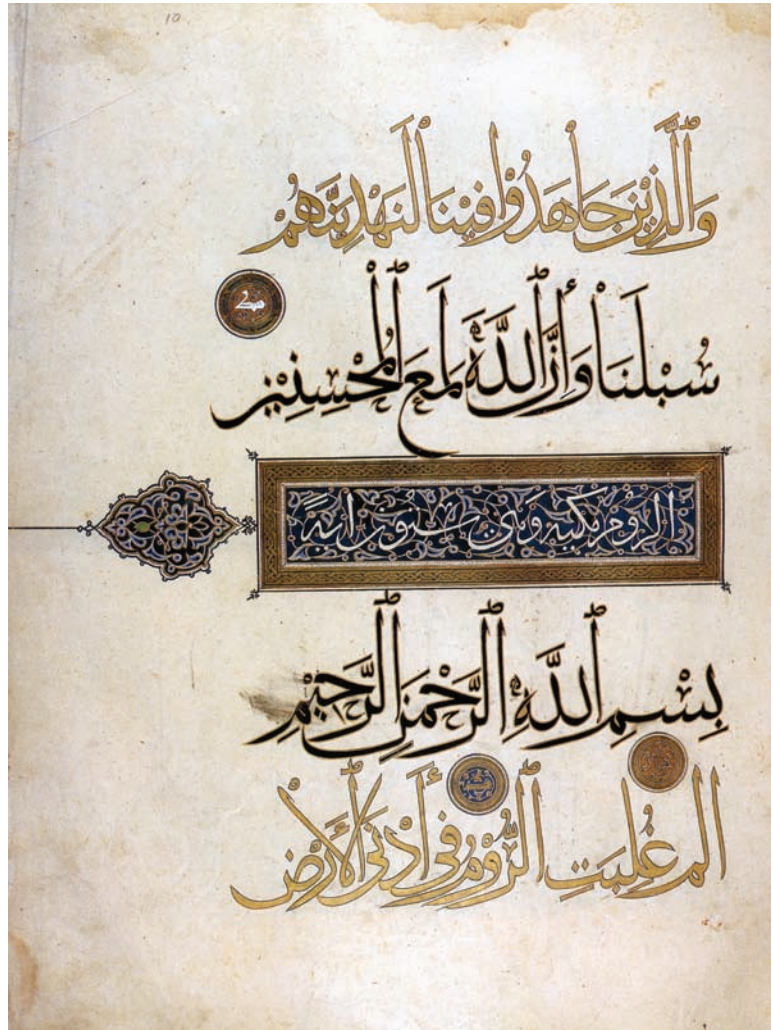 10
وَالَّذِيْنَ جَاهَدُوْا فِيْنَا لَنَهْدِيَنَّهُمْ
سُبْلَنَا وَإِنَّ اللّٰهَ لَمَعَ الْمُحْسِنِيْنَ
الروم مكية وهي ستون آية
بِسْمِ اللّٰهِ الرَّحْمٰنِ الرَّحِيْمِ
الم غُلِبَتِ الرُّوْمُ فِي أَدْنَى الْأَرْضِ